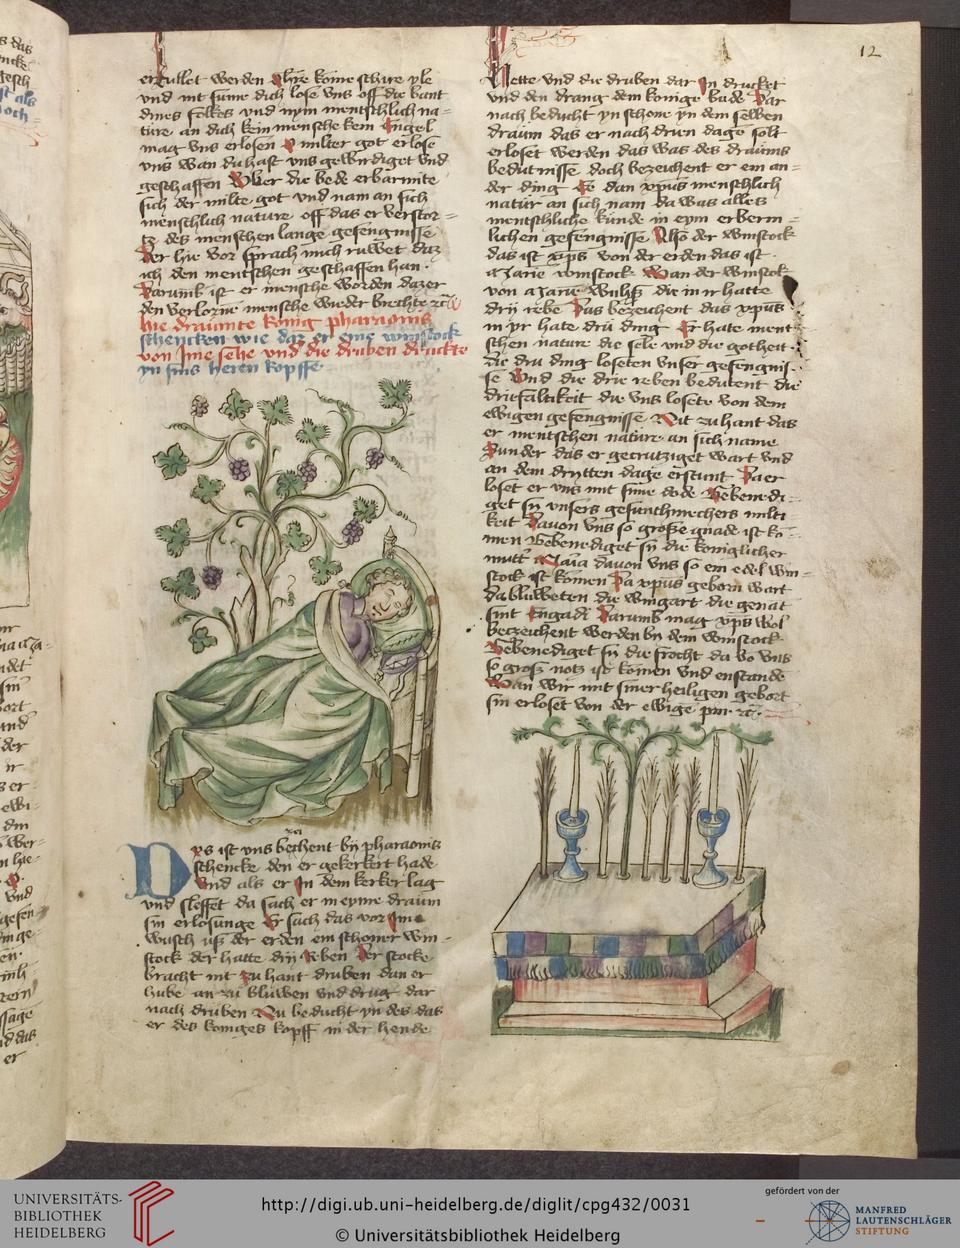 12
erfullet werden Here kome schire vle
vnd nit sume dich lose vns off die bant
dines folkes vnd nym mentschlich na=
ture an dich kein mensche kein Engel
mag vns erlosen O milter got erlose
vns wan du hast vns gewirdiget vnd
geschaffen Vber die bede erbarmte
sich der milte got vnd nam an sich
menschlich nature off das er verstor=
te des menschen lange gefengnisse
Der hie vor sprach mich ruwet daz
ich den mentschen geschaffen han
Darumb ist er mensche worden daz er
den verlorne mensche wieder brechte
Hie draumte konig pharaonis
schencken wie daz er eine winstock
von Ime sehe vnd die druben druckte
yn sins heren kopffe
Dys ist vns bezhent by pharaonis
schencke den er gekerkert hade
Vnd als er In dem kerker lag
vnd sleffet da sach er in eyme draum
sin erlosunge Er sach das vor Ime
wusch usz der erden ein schoner win=
stock der hatte drij Reben Der stocke
bracht nit zu hant druben dan er
hube an zu bluwen vnd drug dar
nach druben Nu beducht yn des das
er des koniges kopff in der hende
Hette vnd die druben dar In drucket
vnd den drang dem konige bude Dar
nach beducht yn schone yn dem selben
draum das er nach drien dage solt
erloset werden das was des draums
bedutnisse doch bezeichent er ein an=
der ding Ee dan xpus menschlich
natur an sich nam da was alles
mentschliche kunde in eym erberm=
lichen gefengnisse Also der winstock
das ist xps von der erden das ist
Marie winstock Wan der winstok
von Marie wuhsz die in ir hatte
drij rebe Das bezeichent das xpus
in yr hate dru ding Er hate ment
schen nature die sele vnd die gotheit
die dru ding loseten vnser gefengnis=
se Vnd die drie reben bedutent die
drifaltikeit die vns losete von dem
ewigen gefengnisse Nit zu hant das
er mentschen nature an sich name
Sunder das er gecrutziget wart vnd
an dem drytten dage erstunt Da er
loset er vns mit sime dode Gebenedi=
get sy vnsers gesuntmechers milti
keit Davon vns so grosze gnade ist ko=
men Gebenediget sy die koniglicher
mutter Maria davon vns so ein edel win=
stock ist komen Da xpus geborn wart
da bluweten die wingart die genat
sint Engadi Darumb mag xps wol
bezeichent werden by dem winstock
Gebenediget sy die frocht da vo vns
so grosz notz ist komen vnd enstande
Wan wir mit siner heiligen gebort
sin erlost von der ewige pin
UNIVERSITÄTS-
BIBLIOTHEK
HEIDELBERG
http://digi.ub.uni-heidelberg.de/diglit/cpg432/0031
© Universitätsbibliothek Heidelberg
gefördert von der
MANFRED
LAUTENSCHLÄGER
STIFTUNG